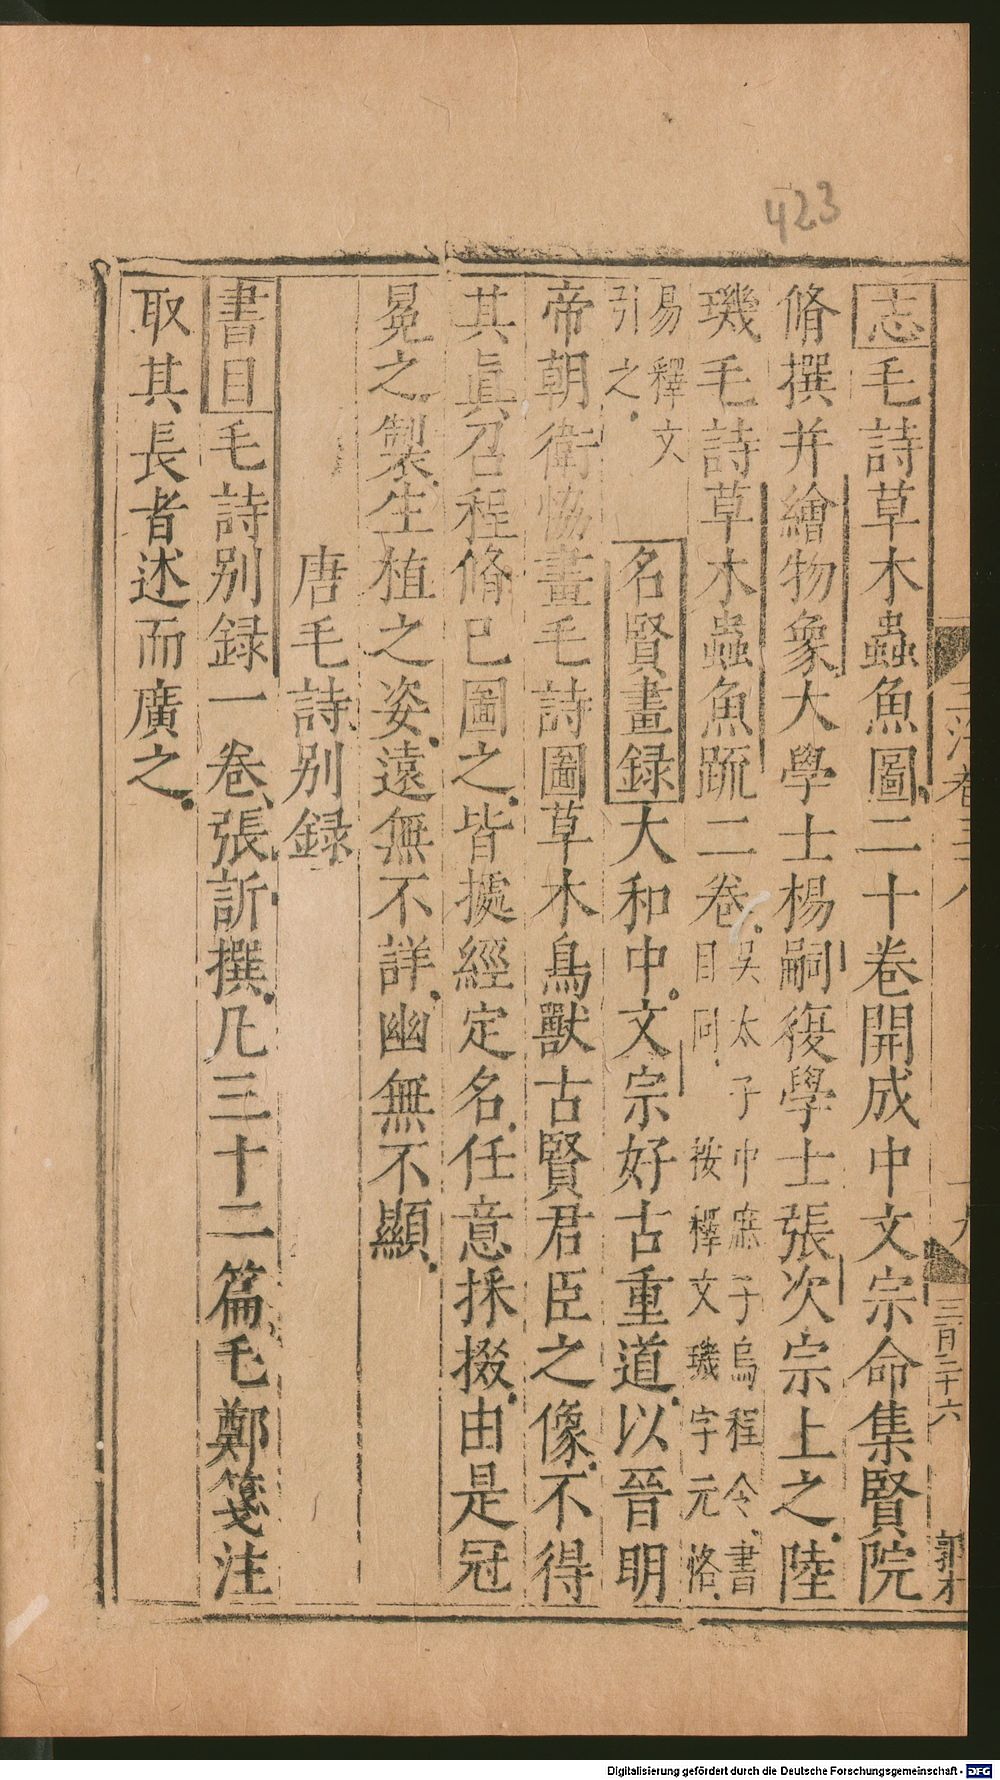 423
志毛詩草木蟲魚圖二十卷開成中文宗命集賢院
脩撰并繪物象大學士楊嗣復學士張次宗上之陸
璣毛詩草木蟲魚疏二卷吳太子中庶子烏程令書
目同按釋文璣字元恪
易釋文
引之名賢畫録大和中文宗好古重道以晉明
帝朝衛恊畫毛詩圖草木鳥獸古賢君臣之像不得
其眞召程脩已圖之皆㨿經定名任意採掇由是冠
冕之製生植之姿遠無不詳幽無不顯
唐毛詩别録
書目毛詩别録一卷張訢撰凡三十二篇毛鄭箋注
取其長者述而廣之
三百二十六
Digitalisierung gefördert durch die Deutsche Forschungsgemeinschaft - DFG